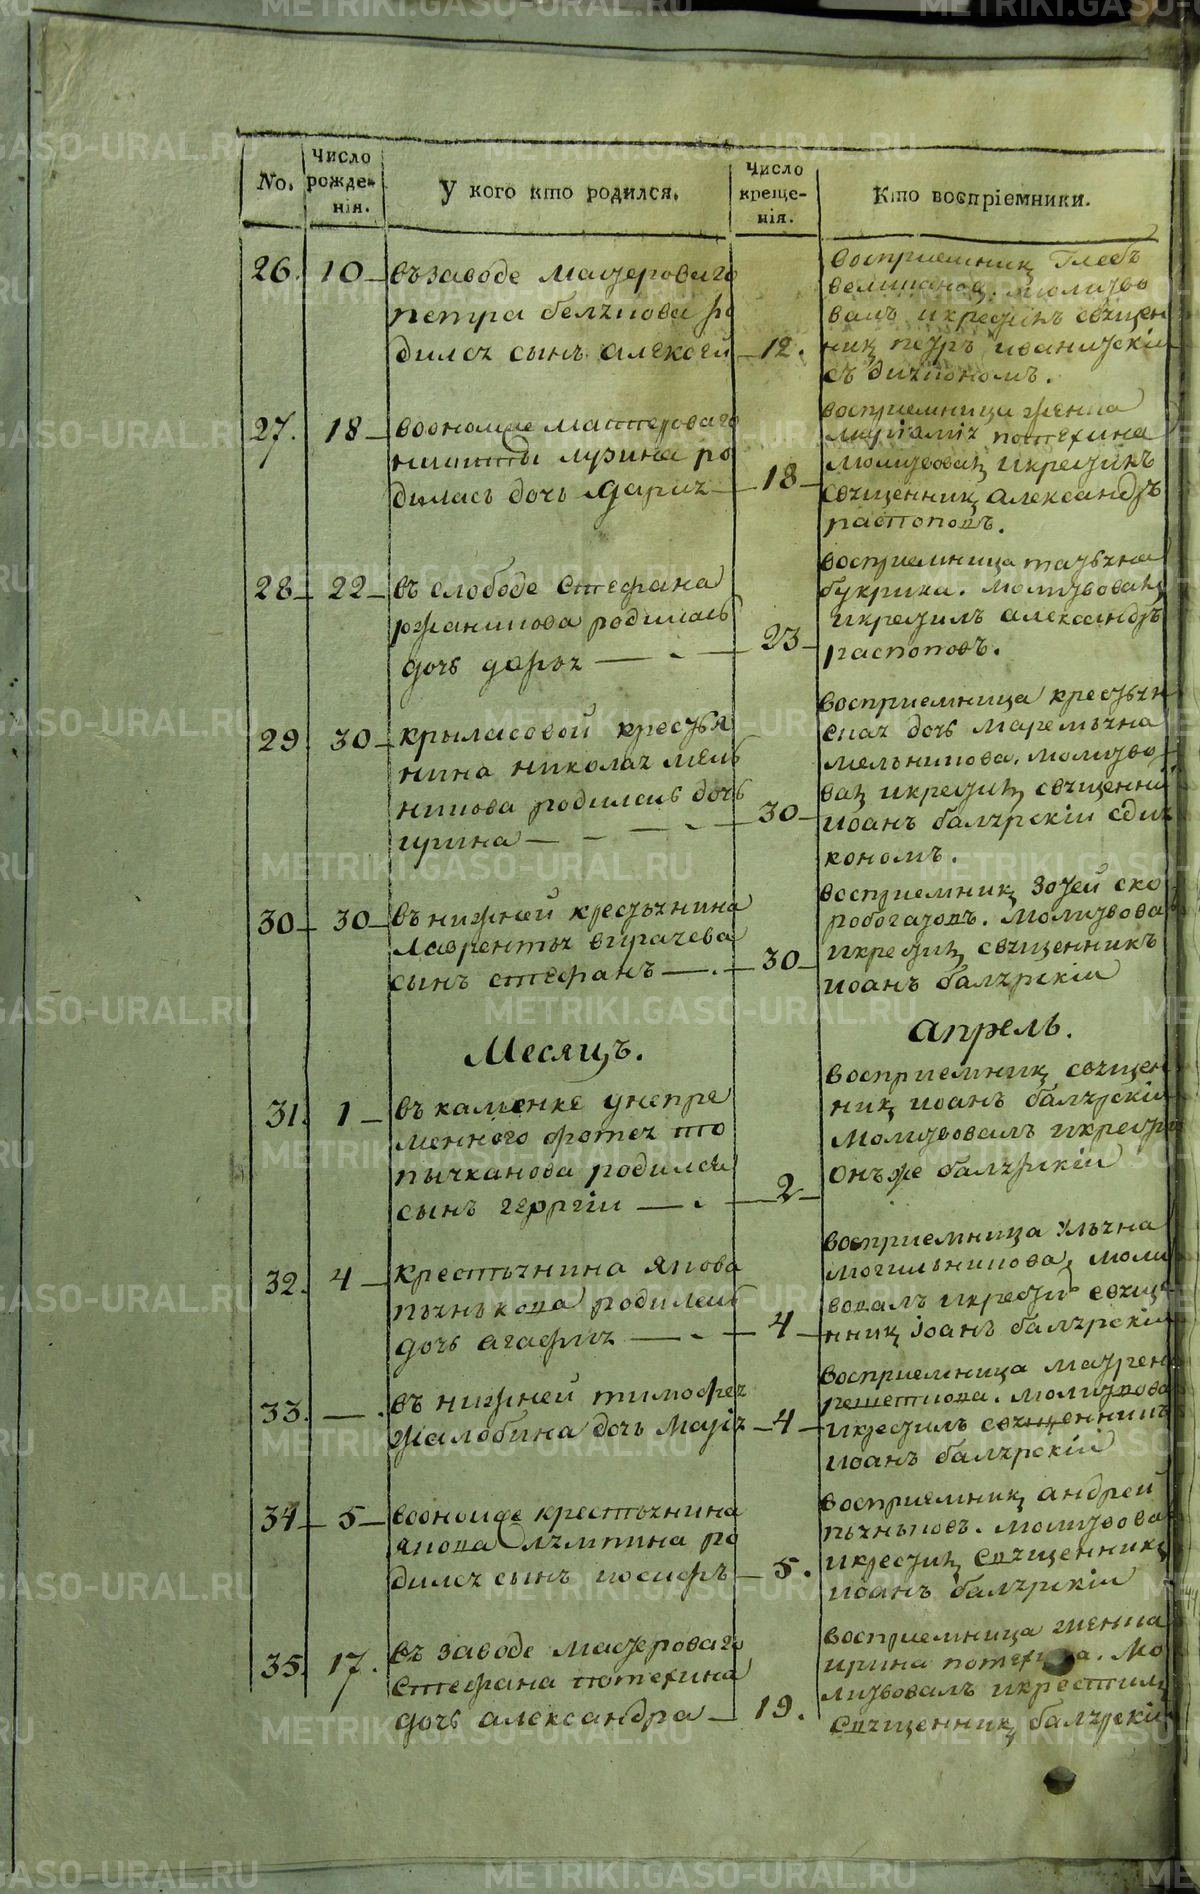 No.
Число рожденія.
У кого кто родился.
Число крещенія.
Кто воспріемники.
26. 10
въ заводе мастероваго
петра белякова ро
дился сынъ алексей
12.
восприемник Глебъ
молитво
валъ икрестилъ священ
ник петръ
съ диакономъ.
27. 18
мастероваго
никиты лузина ро
дилась дочь дария
18
восприемница женка
потехина
молитвовал икрестилъ
священник александръ
распоповъ.
28 22
въ слободе стефана
родилась
дочь дарья
23
восприемница татьяна
букрина. молитвовал
икрестилъ александръ
распоповъ.
29. 30
крыласовой крестья
нина николая мель
никова родилась дочь
ирина
30
восприемница крестьян
ская дочь маремьяна
мельникова. молитво
вал икрестил священник
иоанъ балярскій сдья
кономъ.
30 30
въ нижней крестьянина
лаврентья вирачева
сынъ стефанъ
30
восприемник зотей ско
робогатовъ. молитвова
икрестил священникъ
иоанъ балярскій
Месяцъ.
апрель.
31. 1
въ каменке унепре
меннего фотея то
пычканова родился
сынъ георгіи
2
восприемник священ
ник иоанъ балярскій
молитвовалъ икрести
онъже балярскій
32. 4
крестьянина якова
пьянкова родилась
дочь агафья
4
восприемница ульяна
могильникова, моли
вовалъ икрестил свяще
нник іоанъ балярскій
33.
въ нижней тимофея
жалобина дочь марія
4
восприемница
молитвова
икрестилъ священникъ
иоанъ балярскій
34 5
крестьянина
якова слямпина ро
дился сынъ иосифъ
5.
восприемник андрей
пьянковъ. молитвова
икрестил священникъ
иоанъ балярскій
35. 17.
въ заводе мастероваго
стефана потехина
дочь александра
19.
восприемница женка
ирина потехина. мо
литвовалъ икрестил
священник балярскій
METRIKI.GASO-URAL.RU